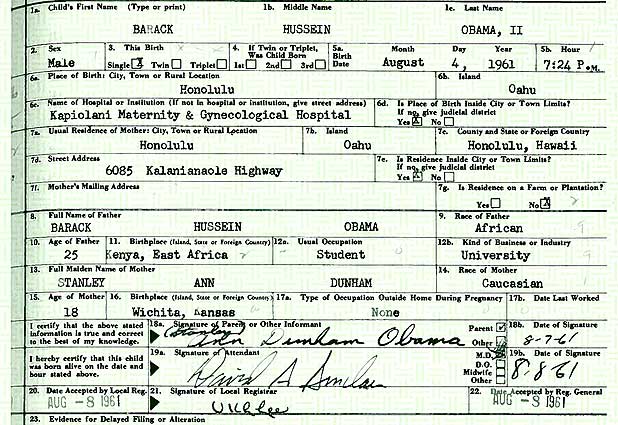 1a. Child's First Name (Type or print) 1b. Middle Name 1c. Last Name
BARACK HUSSEIN OBAMA, II
2. Sex 3. This Birth 4. If Twin or Triplet, Was Child Born 5a. Birth Date Month Day Year 5b. Hour
Male Single X Twin Triplet 1st 2nd 3rd August 4, 1961 7:24 P.M.
6a. Place of Birth: City, Town or Rural Location 6b. Island
Honolulu Oahu
6c. Name of Hospital or Institution (If not in hospital or institution, give street address) 6d. Is Place of Birth Inside City or Town Limits? If no, give judicial district
Kapiolani Maternity & Gynecological Hospital Yes X No
7a. Usual Residence of Mother: City, Town or Rural Location 7b. Island 7c. County and State or Foreign Country
Honolulu Oahu Honolulu, Hawaii
7d. Street Address 7e. Is Residence Inside City or Town Limits? If no, give judicial district
6085 Kalanianaole Highway Yes X No
7f. Mother's Mailing Address 7g. Is Residence on a Farm or Plantation?
Yes No X
8. Full Name of Father 9. Race of Father
BARACK HUSSEIN OBAMA African
10. Age of Father 11. Birthplace (Island, State or Foreign Country) 12a. Usual Occupation 12b. Kind of Business or Industry
25 Kenya, East Africa Student University
13. Full Maiden Name of Mother 14. Race of Mother
STANLEY ANN DUNHAM Caucasian
15. Age of Mother 16. Birthplace (Island, State or Foreign Country) 17a. Type of Occupation Outside Home During Pregnancy 17b. Date Last Worked
18 Wichita, Kansas None
I certify that the above stated information is true and correct to the best of my knowledge. 18a. Signature of Parent or Other Informant Parent Other 18b. Date of Signature
(Stanley) Ann Dunham Obama 8-7-61
I hereby certify that this child was born alive on the date and hour stated above. 19a. Signature of Attendant M.D. D.O. Midwife Other 19b. Date of Signature
David A Sinclair 8-8-61
20. Date Accepted by Local Reg. 21. Signature of Local Registrar 22. Date Accepted by Reg. General
AUG -8 1961 U K L Lee AUG -8 1961
23. Evidence for Delayed Filing or Alteration